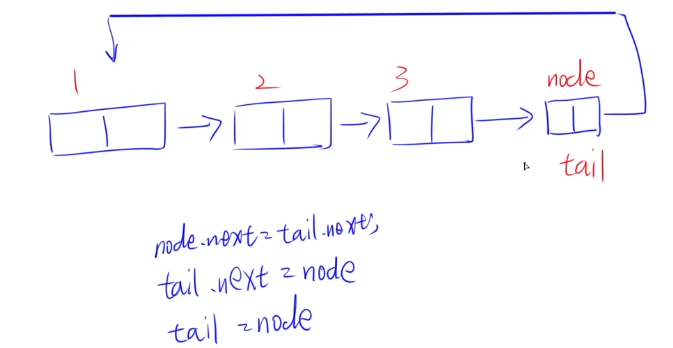 1 2 3 node
tail
node.next = tail.next;
tail.next = node
tail = node